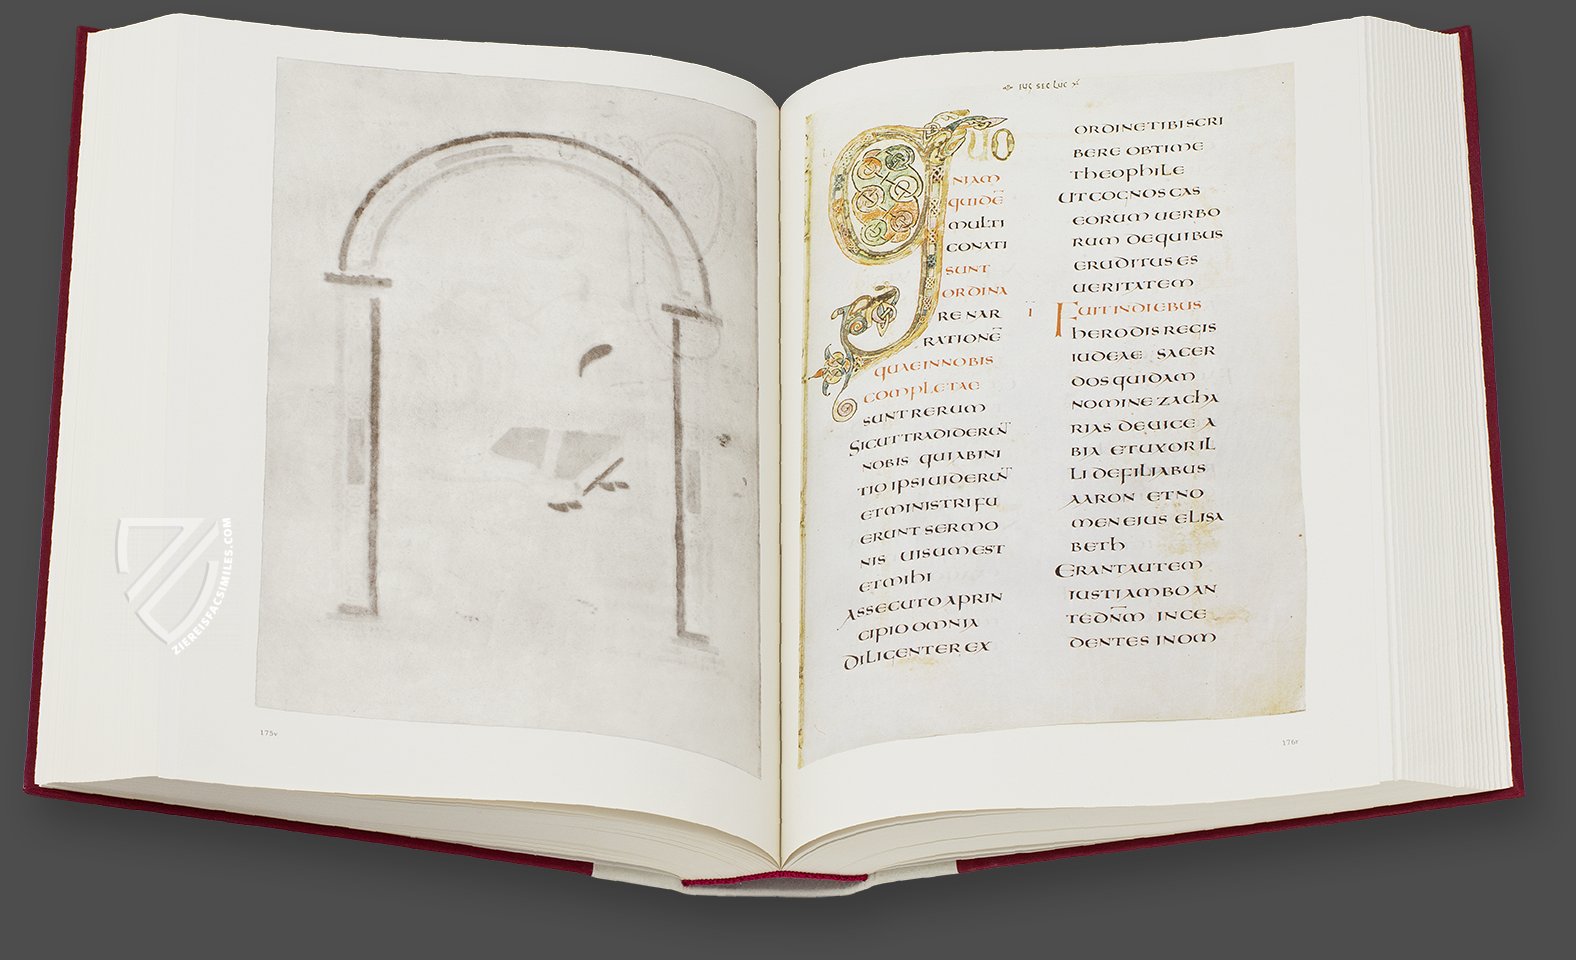 ZIEREISFACSIMILES.COM
175v
QUO
NIAM
QUIDĒ
MULTI
CONATI
SUNT
ORDINA
RE NAR
RATIONĒ
QUAE IN NOBIS
COMPLETAE
SUNT RERUM
SICUT TRADIDERUN̄
NOBIS QUI AB INI
TIO IPSI UIDERUN̄
ET MINISTRI FU
ERUNT SERMO
NIS UISUM EST
ET MIHI
ASSECUTO A PRIN
CIPIO OMNIA
DILIGENTER EX
ORDINE TIBI SCRI
BERE OBTIME
THEOPHILE
UT COGNOSCAS
EORUM UERBO
RUM DE QUIBUS
ERUDITUS ES
UERITATEM
I FUIT IN DIEBUS
HERODIS REGIS
IUDEAE SACER
DOS QUIDAM
NOMINE ZACHA
RIAS DE UICE A
BIA ET UXOR IL
LI DE FILIABUS
AARON ET NO
MEN EIUS ELISA
BETH
ERANT AUTEM
IUSTI AMBO AN
TE DN̄M INCE
DENTES IN OM
176r